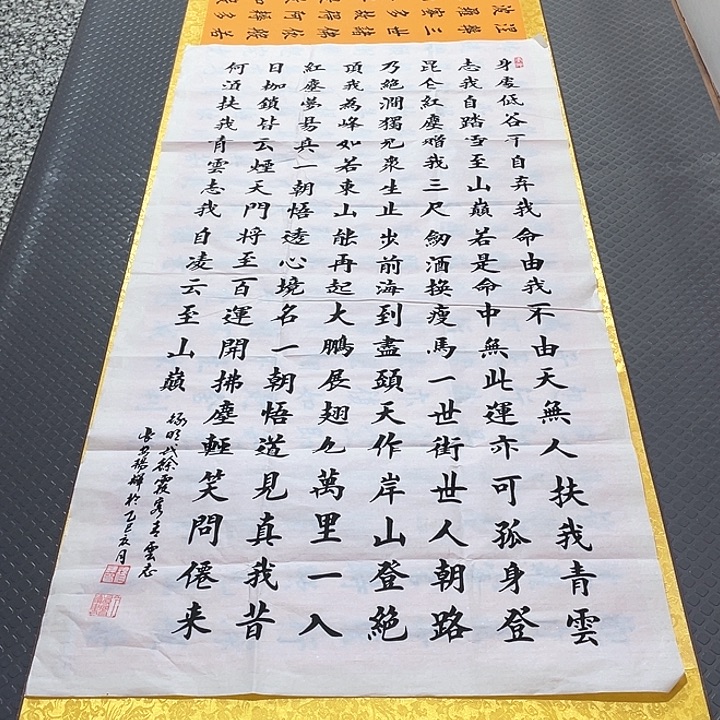 身處低谷不自弃我命由我不由天無人扶我青雲
志我自踏雪至山巔若是命中無此運亦可孤身登
昆仑红塵赠我三尺劒酒換瘦馬一世街世人朝路
乃絕澗獨見衆生止步前海到盡頭天作岸山登絕
頂我為峰如若東山能再起大鵬展翅九萬里一入
红塵夢易真一朝悟透心境名一朝悟道見真我昔
日枷鎖皆云煙天門將至百運開拂塵輕笑問僊来
何湏扶我青雲志我自凌云至山巔
録明代徐霞客青雲志
於乙巳夏月